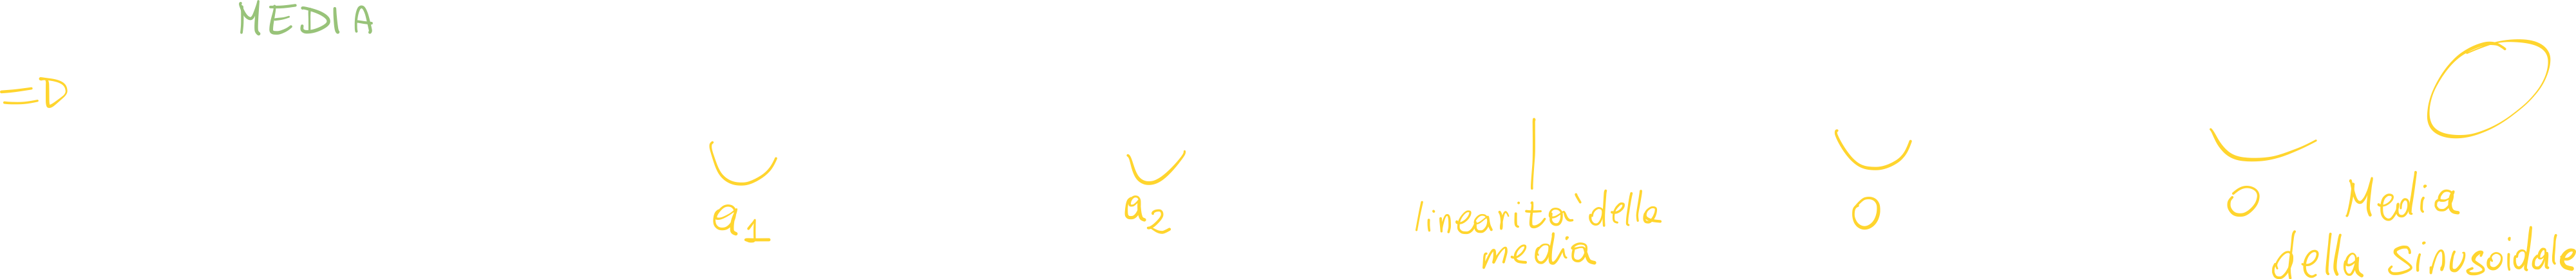 MEDIA
=D
a1 a2 linearità della 0 0 Media
media della sinusoidale